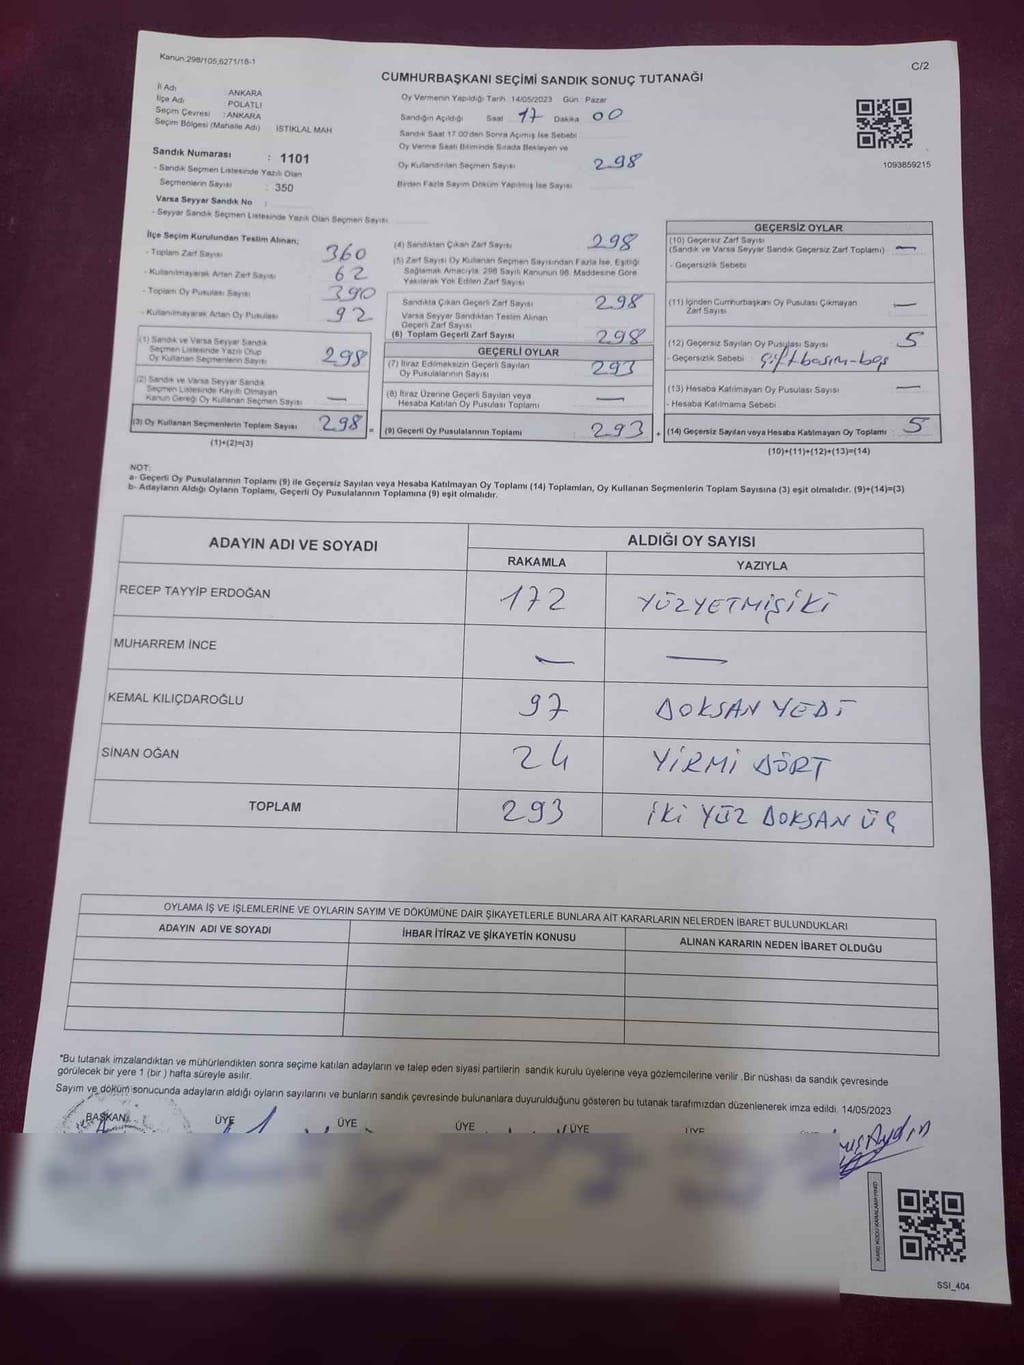 Kanun:298/105,6271/18-1
C/2
CUMHURBAŞKANI SEÇİMİ SANDIK SONUÇ TUTANAĞI
İl Adı : ANKARA
İlçe Adı : POLATLI
Seçim Çevresi : ANKARA
Seçim Bölgesi (Mahalle Adı) İSTİKLAL MAH
Sandık Numarası : 1101
- Sandık Seçmen Listesinde Yazılı Olan
Seçmenlerin Sayısı : 350
Varsa Seyyar Sandık No :
- Seyyar Sandık Seçmen Listesinde Yazılı Olan Seçmen Sayısı
Oy Vermenin Yapıldığı Tarih 14/05/2023 Gün : Pazar
Sandığın Açıldığı Saat 17 Dakika 00
Sandık Saat 17.00'den Sonra Açımış İse Sebebi
Oy Verme Saati Bitiminde Sırada Bekleyen ve
Oy Kullandırılan Seçmen Sayısı 298
Birden Fazla Sayım Döküm Yapılmış İse Sayısı
1093859215
İlçe Seçim Kurulundan Teslim Alınan;
- Toplam Zarf Sayısı 360
- Kullanılmayarak Artan Zarf Sayısı 62
- Toplam Oy Pusulası Sayısı 390
- Kullanılmayarak Artan Oy Pusulası 92
(1) Sandık ve Varsa Seyyar Sandık
Seçmen Listesinde Yazılı Olup
Oy Kullanan Seçmenlerin Sayısı 298
(2) Sandık ve Varsa Seyyar Sandık
Seçmen Listesinde Kayıtlı Olmayan
Kanun Gereği Oy Kullanan Seçmen Sayısı —
(3) Oy Kullanan Seçmenlerin Toplam Sayısı 298 =
(1)+(2)=(3)
(4) Sandıktan Çıkan Zarf Sayısı 298
(5) Zarf Sayısı Oy Kullanan Seçmen Sayısından Fazla İse, Eşitliği
Sağlamak Amacıyla, 298 Sayılı Kanunun 98. Maddesine Göre
Yakılarak Yok Edilen Zarf Sayısı
Sandıkta Çıkan Geçerli Zarf Sayısı 298
Varsa Seyyar Sandıktan Teslim Alınan
Geçerli Zarf Sayısı
(6) Toplam Geçerli Zarf Sayısı 298
GEÇERLİ OYLAR
(7) İtiraz Edilmeksizin Geçerli Sayılan
Oy Pusulalarının Sayısı 293
(8) İtiraz Üzerine Geçerli Sayılan veya
Hesaba Katılan Oy Pusulası Toplamı —
(9) Geçerli Oy Pusulalarının Toplamı 293 +
GEÇERSİZ OYLAR
(10) Geçersiz Zarf Sayısı
(Sandık ve Varsa Seyyar Sandık Geçersiz Zarf Toplamı) —
- Geçersizlik Sebebi
(11) İçinden Cumhurbaşkanı Oy Pusulası Çıkmayan
Zarf Sayısı —
(12) Geçersiz Sayılan Oy Pusulası Sayısı 5
- Geçersizlik Sebebi : Çift basım-boş
(13) Hesaba Katılmayan Oy Pusulası Sayısı —
- Hesaba Katılmama Sebebi
(14) Geçersiz Sayılan veya Hesaba Katılmayan Oy Toplamı 5
(10)+(11)+(12)+(13)=(14)
NOT:
a- Geçerli Oy Pusulalarının Toplamı (9) ile Geçersiz Sayılan veya Hesaba Katılmayan Oy Toplamı (14) Toplamları, Oy Kullanan Seçmenlerin Toplam Sayısına (3) eşit olmalıdır. (9)+(14)=(3)
b- Adayların Aldığı Oyların Toplamı, Geçerli Oy Pusulalarının Toplamına (9) eşit olmalıdır.
ADAYIN ADI VE SOYADI
ALDIĞI OY SAYISI
RAKAMLA YAZIYLA
RECEP TAYYİP ERDOĞAN 172 YÜZYETMİŞİKİ
MUHARREM İNCE — —
KEMAL KILIÇDAROĞLU 97 DOKSAN YEDİ
SİNAN OĞAN 24 YİRMİ DÖRT
TOPLAM 293 İKİ YÜZ DOKSAN ÜÇ
OYLAMA İŞ VE İŞLEMLERİNE VE OYLARIN SAYIM VE DÖKÜMÜNE DAİR ŞİKAYETLERLE BUNLARA AİT KARARLARIN NELERDEN İBARET BULUNDUKLARI
ADAYIN ADI VE SOYADI İHBAR İTİRAZ VE ŞİKAYETİN KONUSU ALINAN KARARIN NEDEN İBARET OLDUĞU
"Bu tutanak imzalandıktan ve mühürlendikten sonra seçime katılan adayların ve talep eden siyasi partilerin sandık kurulu üyelerine veya gözlemcilerine verilir .Bir nüshası da sandık çevresinde
görülecek bir yere 1 (bir ) hafta süreyle asılır.
Sayım ve döküm sonucunda adayların aldığı oyların sayılarını ve bunların sandık çevresinde bulunanlara duyurulduğunu gösteren bu tutanak tarafımızdan düzenlenerek imza edildi. 14/05/2023
BAŞKAN ÜYE ÜYE ÜYE ÜYE ÜYE
SSI_404